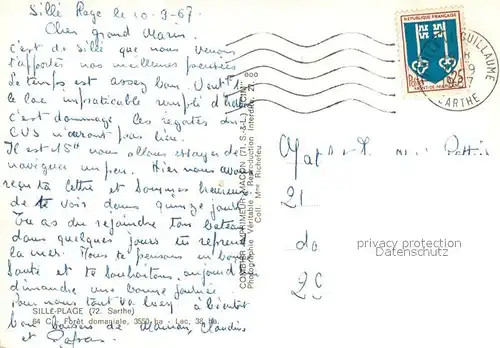 Sillé Plage le 10-9-67.
Cher Grand Marin
c'est de Sillé que nous venons
t'apporter nos meilleures pensées
Le temps est assez bon. Vent
le lac impraticable rempli d'
c'est dommage les regates du
CVS n'auront pas lieu.
Il est 15H nous allons essayer de
naviguer un peu. Hier nous avons
reçu ta lettre et sommes heureux
de te voir dans quinze jours
Tu as du rejoindre ton bateau
dans quelques jours tu reprends
la mer. Nous te pensons en bonne
Santé et te souhaitons, aujourd'hui
dimanche une bonne journée.
Pour nous tout va bien, à bientôt
bons baisers de Maman, Claudine
et
SILLÉ-PLAGE (72. Sarthe)
64 Cu. Forêt domaniale, 3550 ha - Lac, 38 ha.
COMBIER IMPRIMEUR MACON (71. S.-&-L.) "CIM"
Photographie Véritable - Reproduction Interdite
Coll. Mme Richefeu
RÉPUBLIQUE FRANÇAISE
0,25
GUILLAUME
SARTHE
21
20
privacy protection
Datenschutz